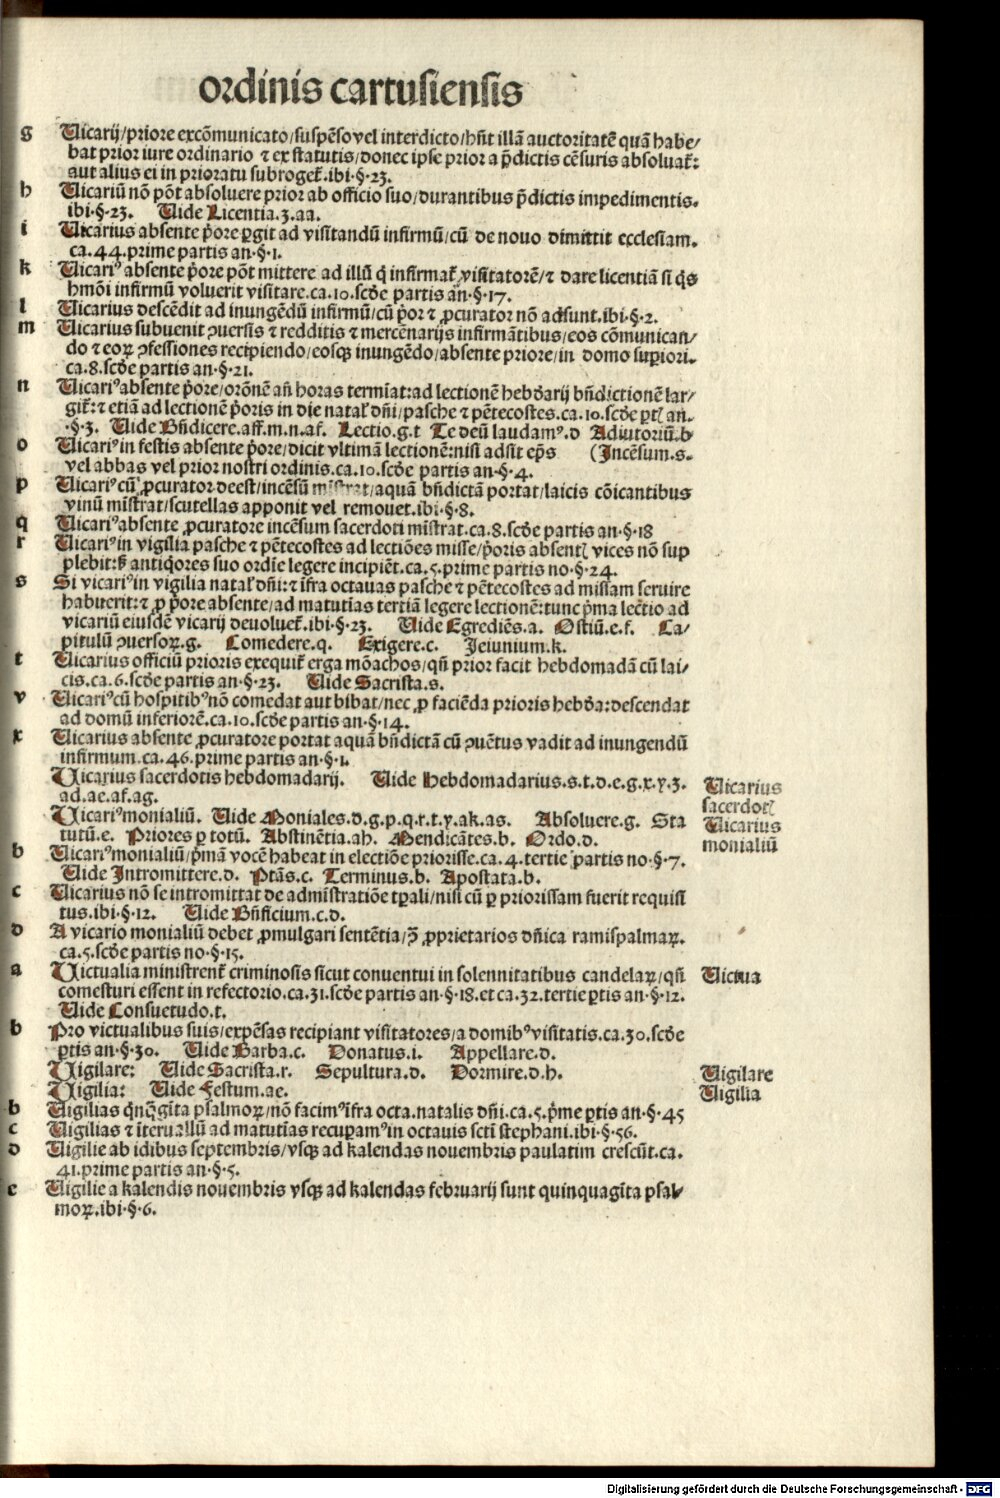 ordinis cartusiensis
g Uicarij/priore excõmunicato/suspẽso vel interdicto/hñt illã auctoritatẽ quã habe/
bat prior iure ordinario ⁊ ex statutis/donec ipse prior a p̃dictis cẽsuris absoluat̃:
aut alius ei in prioratu subroget̃.ibi·§·23.
h Uicariũ nõ põt absoluere prior ab officio suo/durantibus p̃dictis impedimentis.
ibi·§·23. Uide Licentia.3.aa.
i Uicarius absente p̃ore ꝑgit ad visitandũ infirmũ/cũ de nouo dimittit ecclesiam.
ca.44.prime partis an·§·1.
k Uicariꝰ absente p̃ore põt mittere ad illũ q̃ infirmat̃ visitatorẽ/⁊ dare licentiã si q̃s
hmõi infirmũ voluerit visitare.ca.10.scðe partis an·§·17.
l Uicarius descẽdit ad inungẽdũ infirmũ/cũ p̃or ⁊ ꝓcurator nõ adsunt.ibi·§·2.
m Uicarius subuenit ꝯuersis ⁊ redditis ⁊ mercẽnarijs infirmãtibus/eos cõmunican/
do ⁊ eoꝝ ꝯfessiones recipiendo/eosqꝫ inungẽdo/absente priore/in domo superiori.
ca.8.scðe partis an·§·21.
n Uicariꝰ absente p̃ore/orõnẽ añ horas termĩat:ad lectionẽ hebðarij bñdictionẽ lar/
git̃:⁊ etiã ad lectionẽ p̃oris in die natał dñi/pasche ⁊ pẽtecostes.ca.10.scðe ꝑtꝭ an.
·§·3. Uide Bñdicere.aff.m.n.af. Lectio.g.t Te deũ laudamꝰ.d Adiutoriũ.b
o Uicariꝰ in festis absente p̃ore/dicit vltimã lectionẽ:nisi adsit ep̃s (Incẽsum.s.
vel abbas vel prior nostri ordinis.ca.10.scðe partis an·§·4.
p Uicariꝰ cũ ꝓcurator deest/incẽsũ mĩstrat/aquã bñdictã portat/laicis cõicantibus
vinũ mĩstrat/scutellas apponit vel remouet.ibi·§·8.
q Uicariꝰ absente ꝓcuratore incẽsum sacerdoti mĩstrat.ca.8.scðe partis an·§·18
r Uicariꝰ in vigilia pasche ⁊ pẽtecostes ad lectiões misse/p̃oris absentꝭ vices nõ sup
plebit:sꝫ antiq̃ores suo ordĩe legere incipiẽt.ca.5.prime partis no·§·24.
s Si vicariꝰ in vigilia natał dñi:⁊ ĩfra octauas pasche ⁊ pẽtecostes ad missam seruire
habuerit:⁊ ꝓ p̃ore absente/ad matutĩas tertiã legere lectionẽ:tunc p̃ma lectio ad
vicariũ eiusdẽ vicarij deuoluet̃.ibi·§·23. Uide Egrediẽs.a. Ostiũ.e.f. Ca/
pitulũ ꝯuersoꝝ.g. Comedere.q. Exigere.c. Jeiunium.k.
t Uicarius officiũ prioris exequit̃ erga mõachos/qñ prior facit hebdomadã cũ lai/
cis.ca.6.scðe partis an·§·23. Uide Sacrista.s.
v Uicariꝰ cũ hospitibꝰ nõ comedat aut bibat/nec ꝓ faciẽda prioris hebða:descendat
ad domũ inferiorẽ.ca.10.scðe partis an·§·14.
x Uicarius absente ꝓcuratore portat aquã bñdictã cũ ꝯuẽtus vadit ad inungendũ
infirmum.ca.46.prime partis an·§·1.
Uicarius sacerdotis hebdomadarij. Uide Hebdomadarius.s.t.d.e.g.x.y.3. Uicarius
ad.ae.af.ag. sacerdotꝭ
Uicariꝰ monialiũ. Uide Moniales.d.g.p.q.r.t.y.ak.as. Absoluere.g. Sta Uicarius
tutũ.e. Priores ꝑ totũ. Abstinẽtia.ah. Mendicãtes.b. Ordo.d. monialiũ
b Uicariꝰ monialiũ/p̃mã vocẽ habeat in electiõe priorisse.ca.4.tertie partis no·§·7.
Uide Intromittere.d. Ptãs.c. Terminus.b. Apostata.b.
c Uicarius nõ se intromittat de admĩstratiõe tꝑali/nisi cũ ꝑ priorissam fuerit requisi
tus.ibi·§·12. Uide Bñficium.c.d.
d A vicario monialiũ debet ꝓmulgari sentẽtia/ꝯ̃ ꝓprietarios dñica ramispalmaꝝ.
ca.5.scðe partis no·§·15.
a Uictualia ministrent̃ criminosis sicut conuentui in solennitatibus candelaꝝ/qñ Uictua
comesturi essent in refectorio.ca.31.scðe partis an·§·18.et ca.32.tertie ꝑtis an·§·12.
Uide Consuetudo.t.
b Pro victualibus suis/expẽsas recipiant visitatores/a domibꝰ visitatis.ca.30.scðe
ꝑtis an·§·30. Uide Barba.c. Donatus.i. Appellare.d.
Uigilare: Uide Sacrista.r. Sepultura.d. Dormire.d.h. Uigilare
Uigilia: Uide Festum.ae. Uigilia
b Uigilias q̃nq̃gĩta psalmoꝝ/nõ facimꝰ ĩfra octa.natalis dñi.ca.5.p̃me ꝑtis an·§·45
c Uigilias ⁊ ĩteruallũ ad matutĩas recuꝑamꝰ in octauis scti stephani.ibi·§·56.
d Uigilie ab idibus septembris/vsqꝫ ad kalendas nouembris paulatim crescũt.ca.
41.prime partis an·§·5.
e Uigilie a kalendis nouembris vsqꝫ ad kalendas februarij sunt quinquagĩta psal/
moꝝ.ibi·§·6.
Digitalisierung gefördert durch die Deutsche Forschungsgemeinschaft - DFG